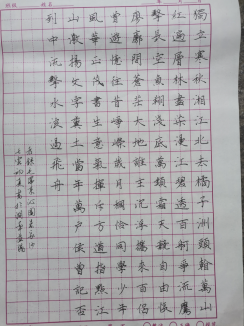 獨立寒秋湘江北去橘子洲頭看萬山
紅遍層林盡染漫江碧透百舸爭流鷹
擊長空魚翔淺底萬類霜天競自由悵
寥廓蒼茫問大地誰主沉浮攜來百侶
曾遊憶往昔崢嶸歲月稠恰同學少年
風華正茂書生意氣揮斥方遒指點江
山激揚文字糞土當年萬戶侯曾記否
到中流擊水浪遏飛舟
右錄毛澤東沁園春長沙